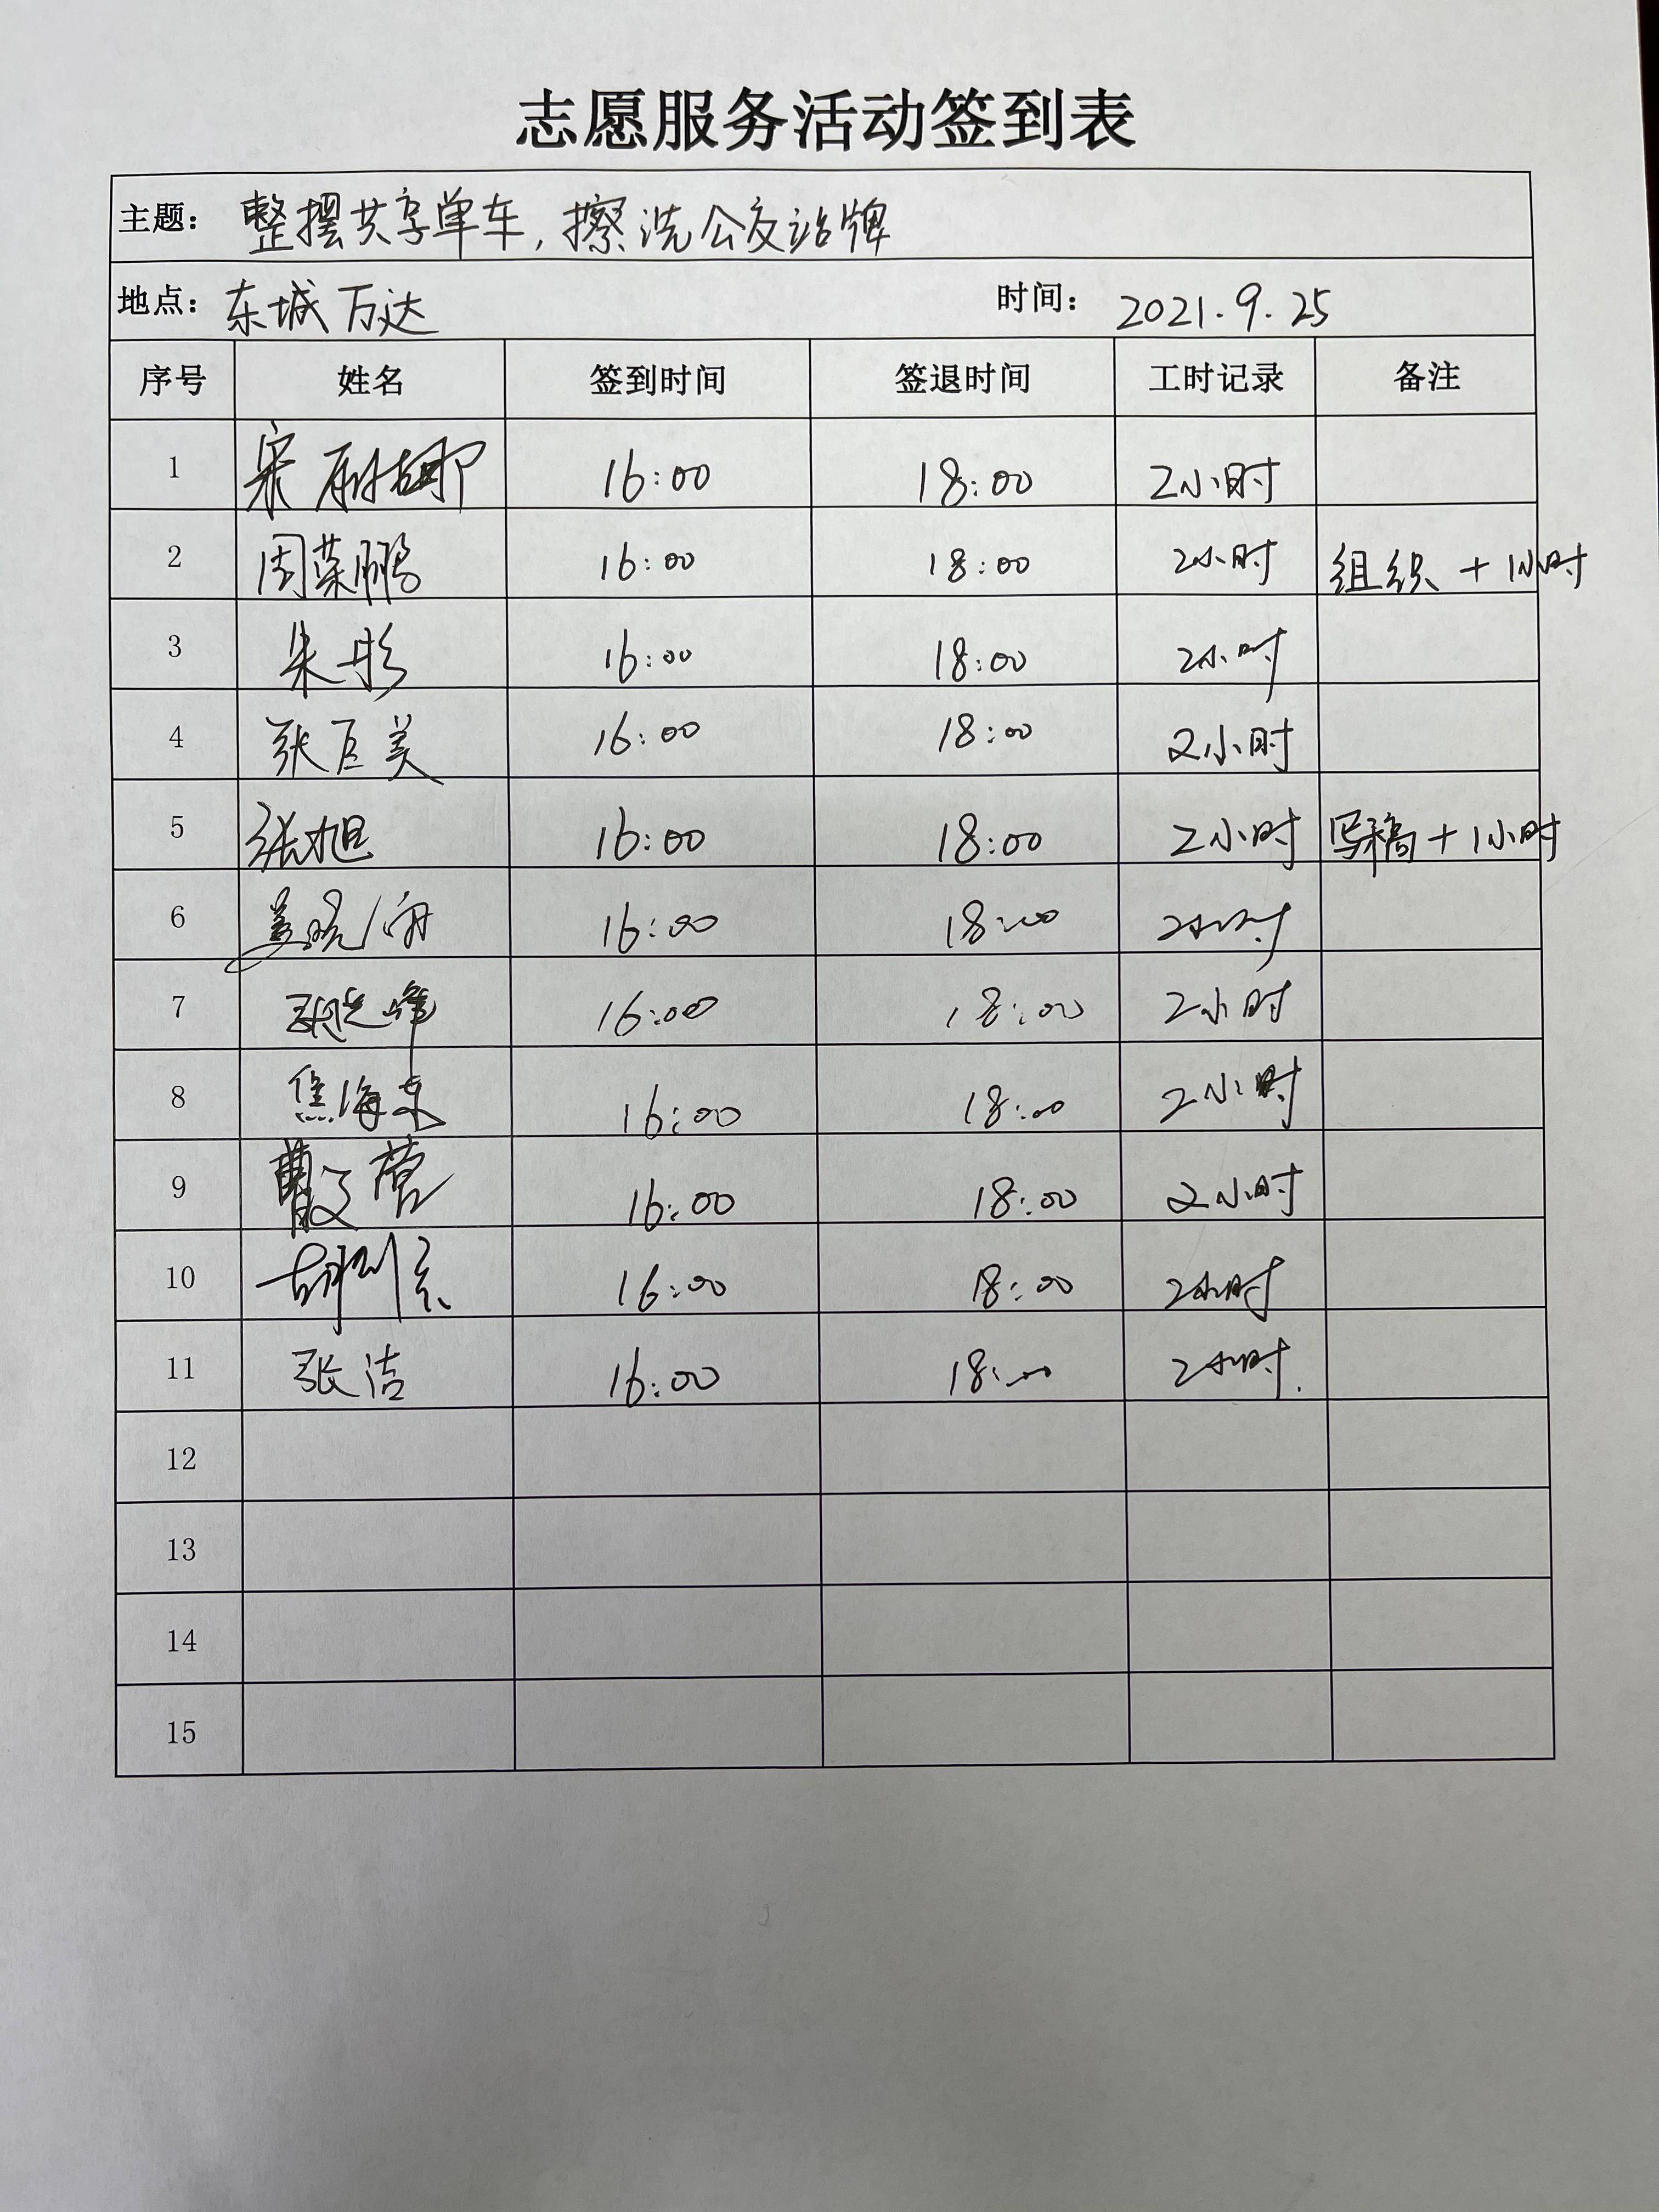 志愿服务活动签到表
主题： 整摆共享单车，擦洗公交站牌
地点： 东城万达 时间： 2021.9.25
序号 姓名 签到时间 签退时间 工时记录 备注
1 宋 16:00 18:00 2小时
2 周荣鹏 16:00 18:00 2小时 组织+1小时
3 朱彤 16:00 18:00 2小时
4 张巨美 16:00 18:00 2小时
5 张旭 16:00 18:00 2小时 写稿+1小时
6 16:00 18:00 2小时
7 16:00 18:00 2小时
8 焦海东 16:00 18:00 2小时
9 曹文营 16:00 18:00 2小时
10 胡 16:00 18:00 2小时
11 张洁 16:00 18:00 2小时.
12
13
14
15